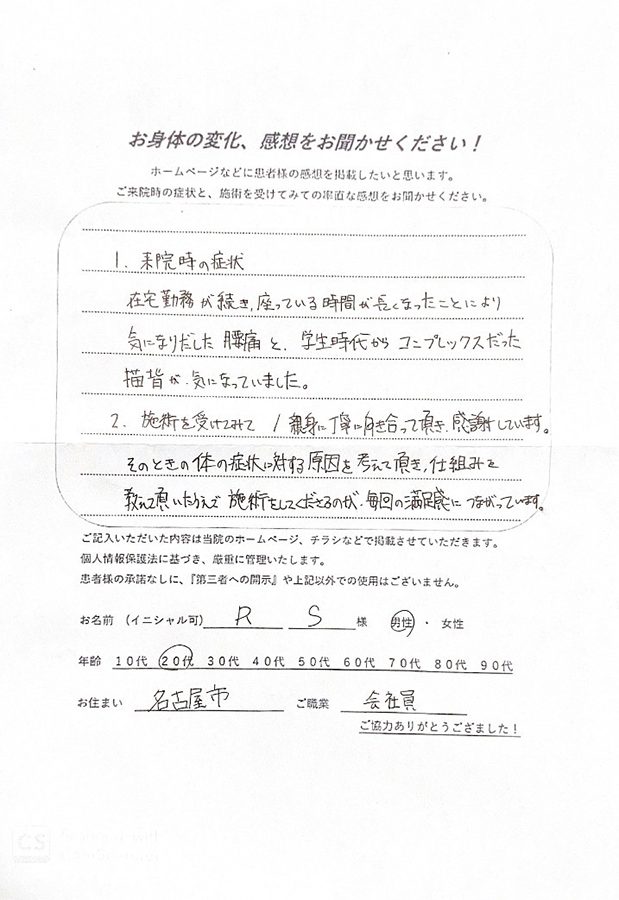 お身体の変化、感想をお聞かせください！
ホームページなどに患者様の感想を掲載したいと思います。
ご来院時の症状と、施術を受けてみての率直な感想をお聞かせください。
1. 来院時の症状
在宅勤務が続き、座っている時間が長くなったことにより
気になりだした腰痛と、学生時代からコンプレックスだった
猫背が、気になっていました。
2. 施術を受けてみて / 親身に丁寧に向き合って頂き、感謝しています。
そのときの体の症状に対する原因を考えて頂き、仕組みを
教えて頂いたうえで施術をしてくださるのが、毎回の満足感につながっています。
ご記入いただいた内容は当院のホームページ、チラシなどで掲載させていただきます。
個人情報保護法に基づき、厳重に管理いたします。
患者様の承諾なしに、『第三者への開示』や上記以外での使用はございません。
お名前 (イニシャル可) R S 様 男性 ・ 女性
年齢 10代 20代 30代 40代 50代 60代 70代 80代 90代
お住まい 名古屋市 ご職業 会社員
ご協力ありがとうござました！
CS